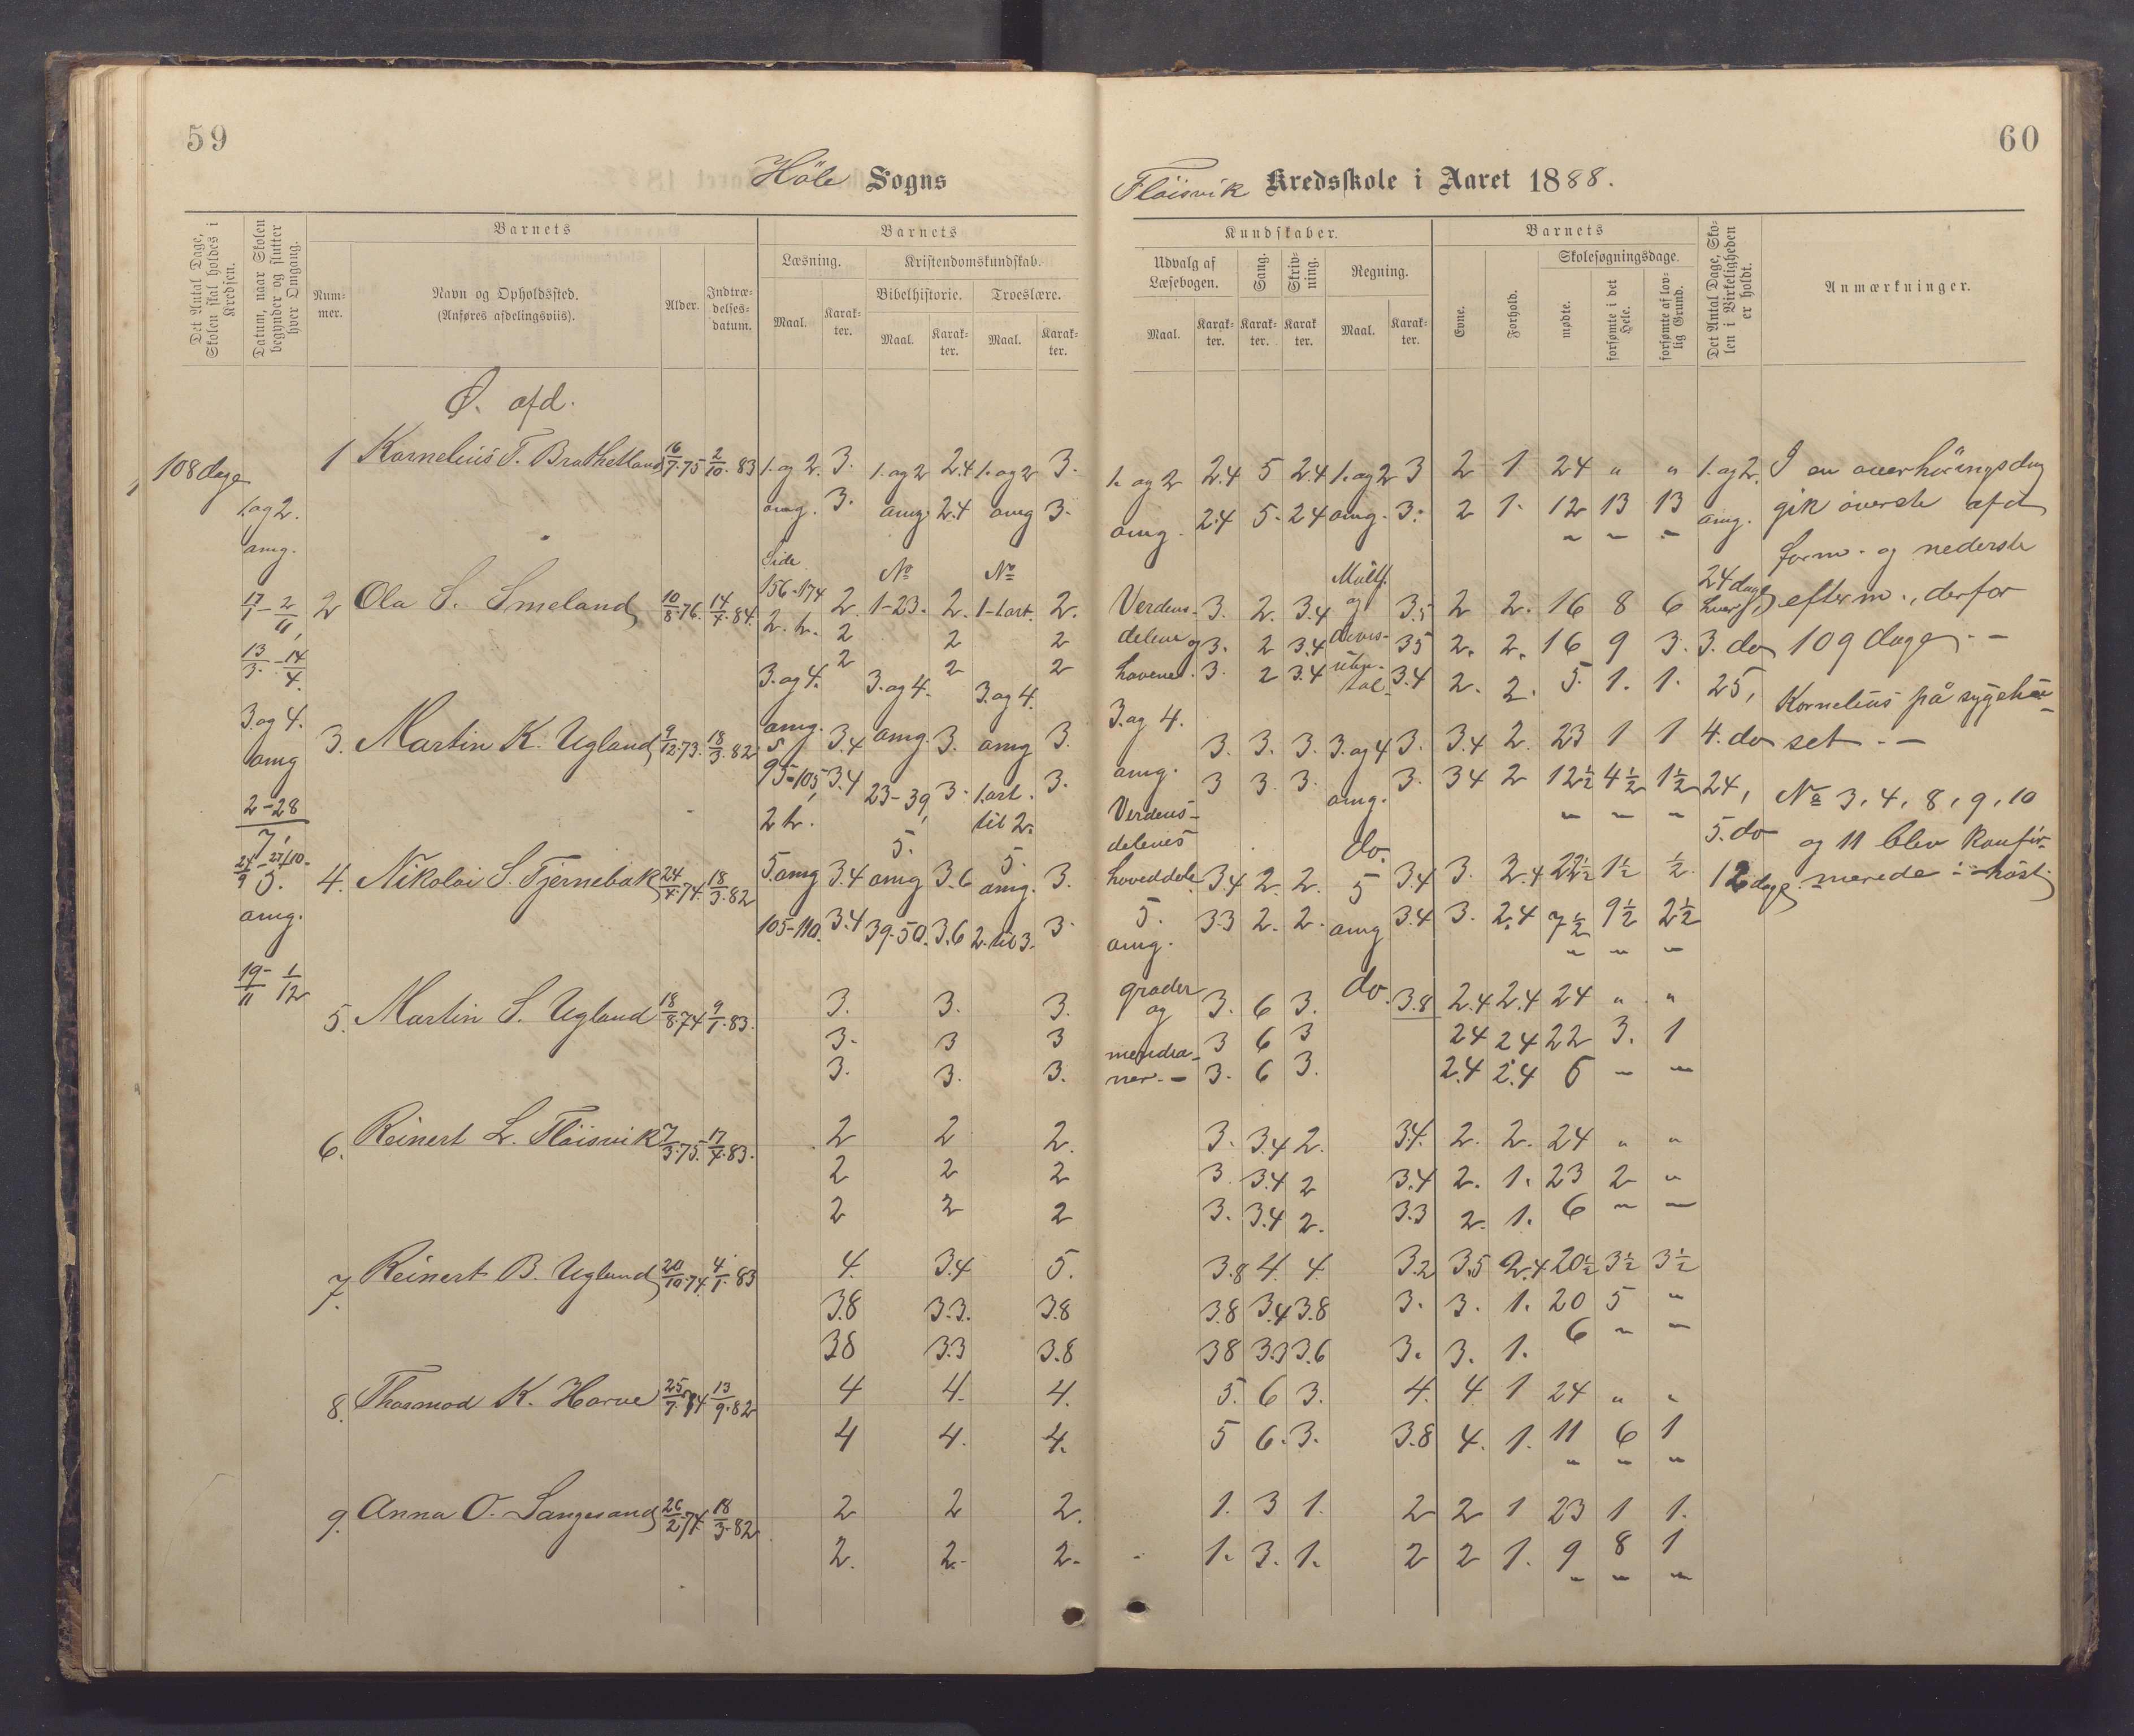 59
60
Höle Sogns
Flöisvik Kredsskole i Aaret 1888.
Det Antal Dage, Skolen skal holdes i Kredsen.
Datum, naar Skolen begynder og slutter hver Omgang.
Barnets
Nummer.
Navn og Opholdssted.
(Anføres afdelingsviis).
Alder.
Indtrædelsesdatum.
Barnets
Læsning.
Maal.
Karakter.
Kristendomskundskab.
Bibelhistorie.
Maal.
Karakter.
Troeslære.
Maal.
Karakter.
Kundskaber.
Udvalg af Læsebogen.
Maal.
Karakter.
Sang.
Karakter.
Skrivning.
Karakter.
Regning.
Maal.
Karakter.
Barnets
Evne.
Forhold.
Skolesøgningsdage.
mødte.
forsømte i det Hele.
forsømte af lovlig Grund.
Det Antal Dage, Skolen i Virkeligheden er holdt.
Anmærkninger.
Ø. afd.
108 dage
1. og 2.
omg.
17/1 - 2/11,
13/3. - 14/4.
3. og 4.
omg
2-28/7,
24/9 - 27/10.
5.
omg.
19/11 - 1/12
1 Kornelius T. Brathetland 16/7.75 2/10.83 1. og 2. 3. 1. og 2 2.4 1. og 2 3. 1. og 2 2.4 5 2.4 1. og 2 3 2 1 24 " " 1. og 2.
omg. 3. omg. 2.4 omg 3. omg. 2.4 5. 2.4 omg. 3. 2 1. 12 13 13 omg.
Side No No Mult.
2 Ola S. Smeland 10/8.76. 14/4.84. 156-174 2. 1-23. 2. 1-1.art. 2. Verdens- 3. 2. 3.4 og 3.5 2 2. 16 8 6 24 dage hver,
2. h. 2 2 2 delene og 3. 2 3.4 divis- 35 2. 2. 16 9 3. 3. do
2 2 2 havene. 3. 2 3.4 3.4 2. 2. 5. 1. 1. 25,
3. og 4. 3. og 4. 3. og 4. 3. og 4.
3. Martin K. Ugland 9/12.73. 18/3.82 omg. 3.4 omg. 3. omg 3. omg. 3. 3. 3. 3. og 4 3. 3.4 2. 23 1 1 4. do
95-105, 3.4 23-39, 3. 1.art. 3. 3 3 3. omg. 3. 34 2 12½ 4½ 1½ 24,
2 h. til 2. Verdens- 5. do
5. 5. delenes do.
4. Nikolai S. Tjernebak 24/4.74. 18/3.82 5. omg 3.4 omg 3.6 omg. 3. hoveddele 3.4 2. 2. 5 3.4 3. 2.4 22½ 1½ ½ 12 dage.
105-110. 3.4 39-50. 3.6 2. til 3. 3. 5. omg. 33 2. 2. omg 3.4 3. 2.4 7½ 9½ 2½
5. Martin S. Ugland 18/8.74 9/1.83. 3. 3. 3. grader og 3. 6 3. do. 3.8 2.4 2.4 24 " "
3. 3 3 meridia- 3 6 3 24 24 22 3. 1
3. 3. 3. ner. - 3. 6 3. 2.4 2.4 6 - -
6. Reinert L. Flöisvik 7/3.75. 17/4.83. 2 2 2. 3. 3.4 2. 3.4. 2. 2. 24 " "
2 2 2 3. 3.4 2 3.4 2. 1. 23 2 "
2 2 2 3. 3.4 2. 3.3 2. 1. 6 - -
7. Reinert B. Ugland 20/10.74 4/1.83 4. 3.4 5. 3.8 4. 4. 3.2 3.5 2.4 20½ 3½ 3½
3.8 3.3. 3.8 3.8 3.4 3.8 3. 3. 1. 20 5 "
38 3.3 3.8 38 3.3 3.6 3. 3. 1. 6 - -
8. Thormod K. Harve 25/7.74 13/9.82 4 4. 4. 5. 6 3. 4. 4 1 24 " "
4 4. 4. 5 6. 3. 3.8 4. 1. 11 6 1
9. Anna O. Langesand 26/2.74. 18/3.82 2 2 2. 1. 3 1. 2 2 1 23 1 1.
2. 2. 2. 1. 3. 1. 2 2 1. 9 8 1
I en overhöringsdag
gik överste afd
form. og nederste
efterm., derfor
109 dage. -
Kornelius på sygehu-
set. -
No 3, 4, 8, 9, 10
og 11 blev konfir-
merede i höst.